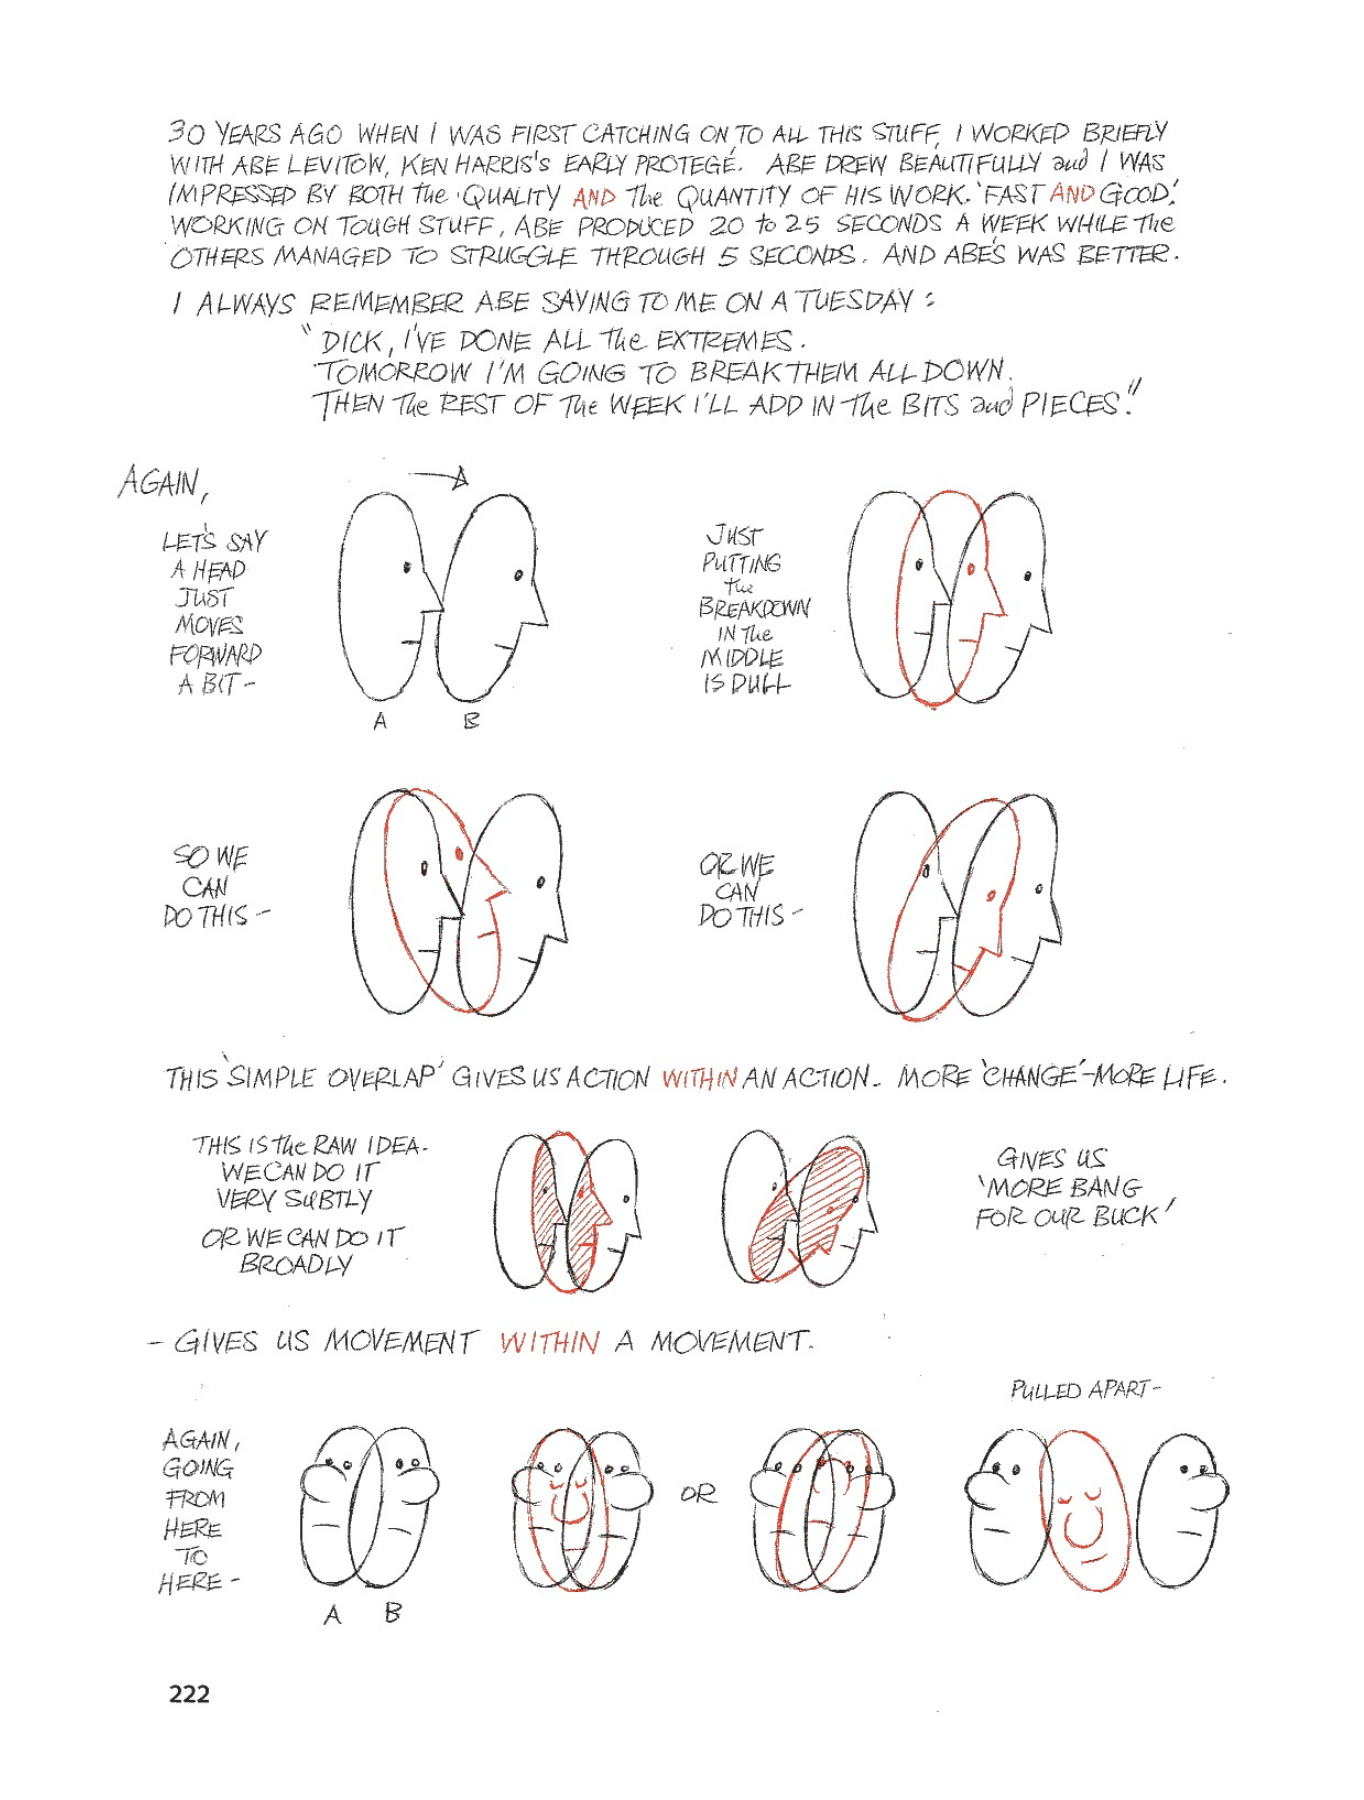 30 YEARS AGO WHEN I WAS FIRST CATCHING ON TO ALL THIS STUFF, I WORKED BRIEFLY
WITH ABE LEVITOW, KEN HARRIS'S EARLY PROTEGÉ. ABE DREW BEAUTIFULLY and I WAS
IMPRESSED BY BOTH the QUALITY AND The QUANTITY OF HIS WORK. 'FAST AND GOOD.'
WORKING ON TOUGH STUFF, ABE PRODUCED 20 to 25 SECONDS A WEEK WHILE The
OTHERS MANAGED TO STRUGGLE THROUGH 5 SECONDS. AND ABE'S WAS BETTER.
I ALWAYS REMEMBER ABE SAYING TO ME ON A TUESDAY:
"DICK, I'VE DONE ALL The EXTREMES.
TOMORROW I'M GOING TO BREAK THEM ALL DOWN.
THEN The REST OF The WEEK I'LL ADD IN The BITS and PIECES."
AGAIN,
LET'S SAY
A HEAD
JUST
MOVES
FORWARD
A BIT -
A B
JUST
PUTTING
the
BREAKDOWN
IN The
MIDDLE
IS DULL
SO WE
CAN
DO THIS -
OR WE
CAN
DO THIS -
THIS 'SIMPLE OVERLAP' GIVES US ACTION WITHIN AN ACTION. MORE 'CHANGE' - MORE LIFE.
THIS IS the RAW IDEA.
WE CAN DO IT
VERY SUBTLY
OR WE CAN DO IT
BROADLY
GIVES US
'MORE BANG
FOR OUR BUCK'
- GIVES US MOVEMENT WITHIN A MOVEMENT.
PULLED APART -
AGAIN,
GOING
FROM
HERE
TO
HERE -
A B
OR
222